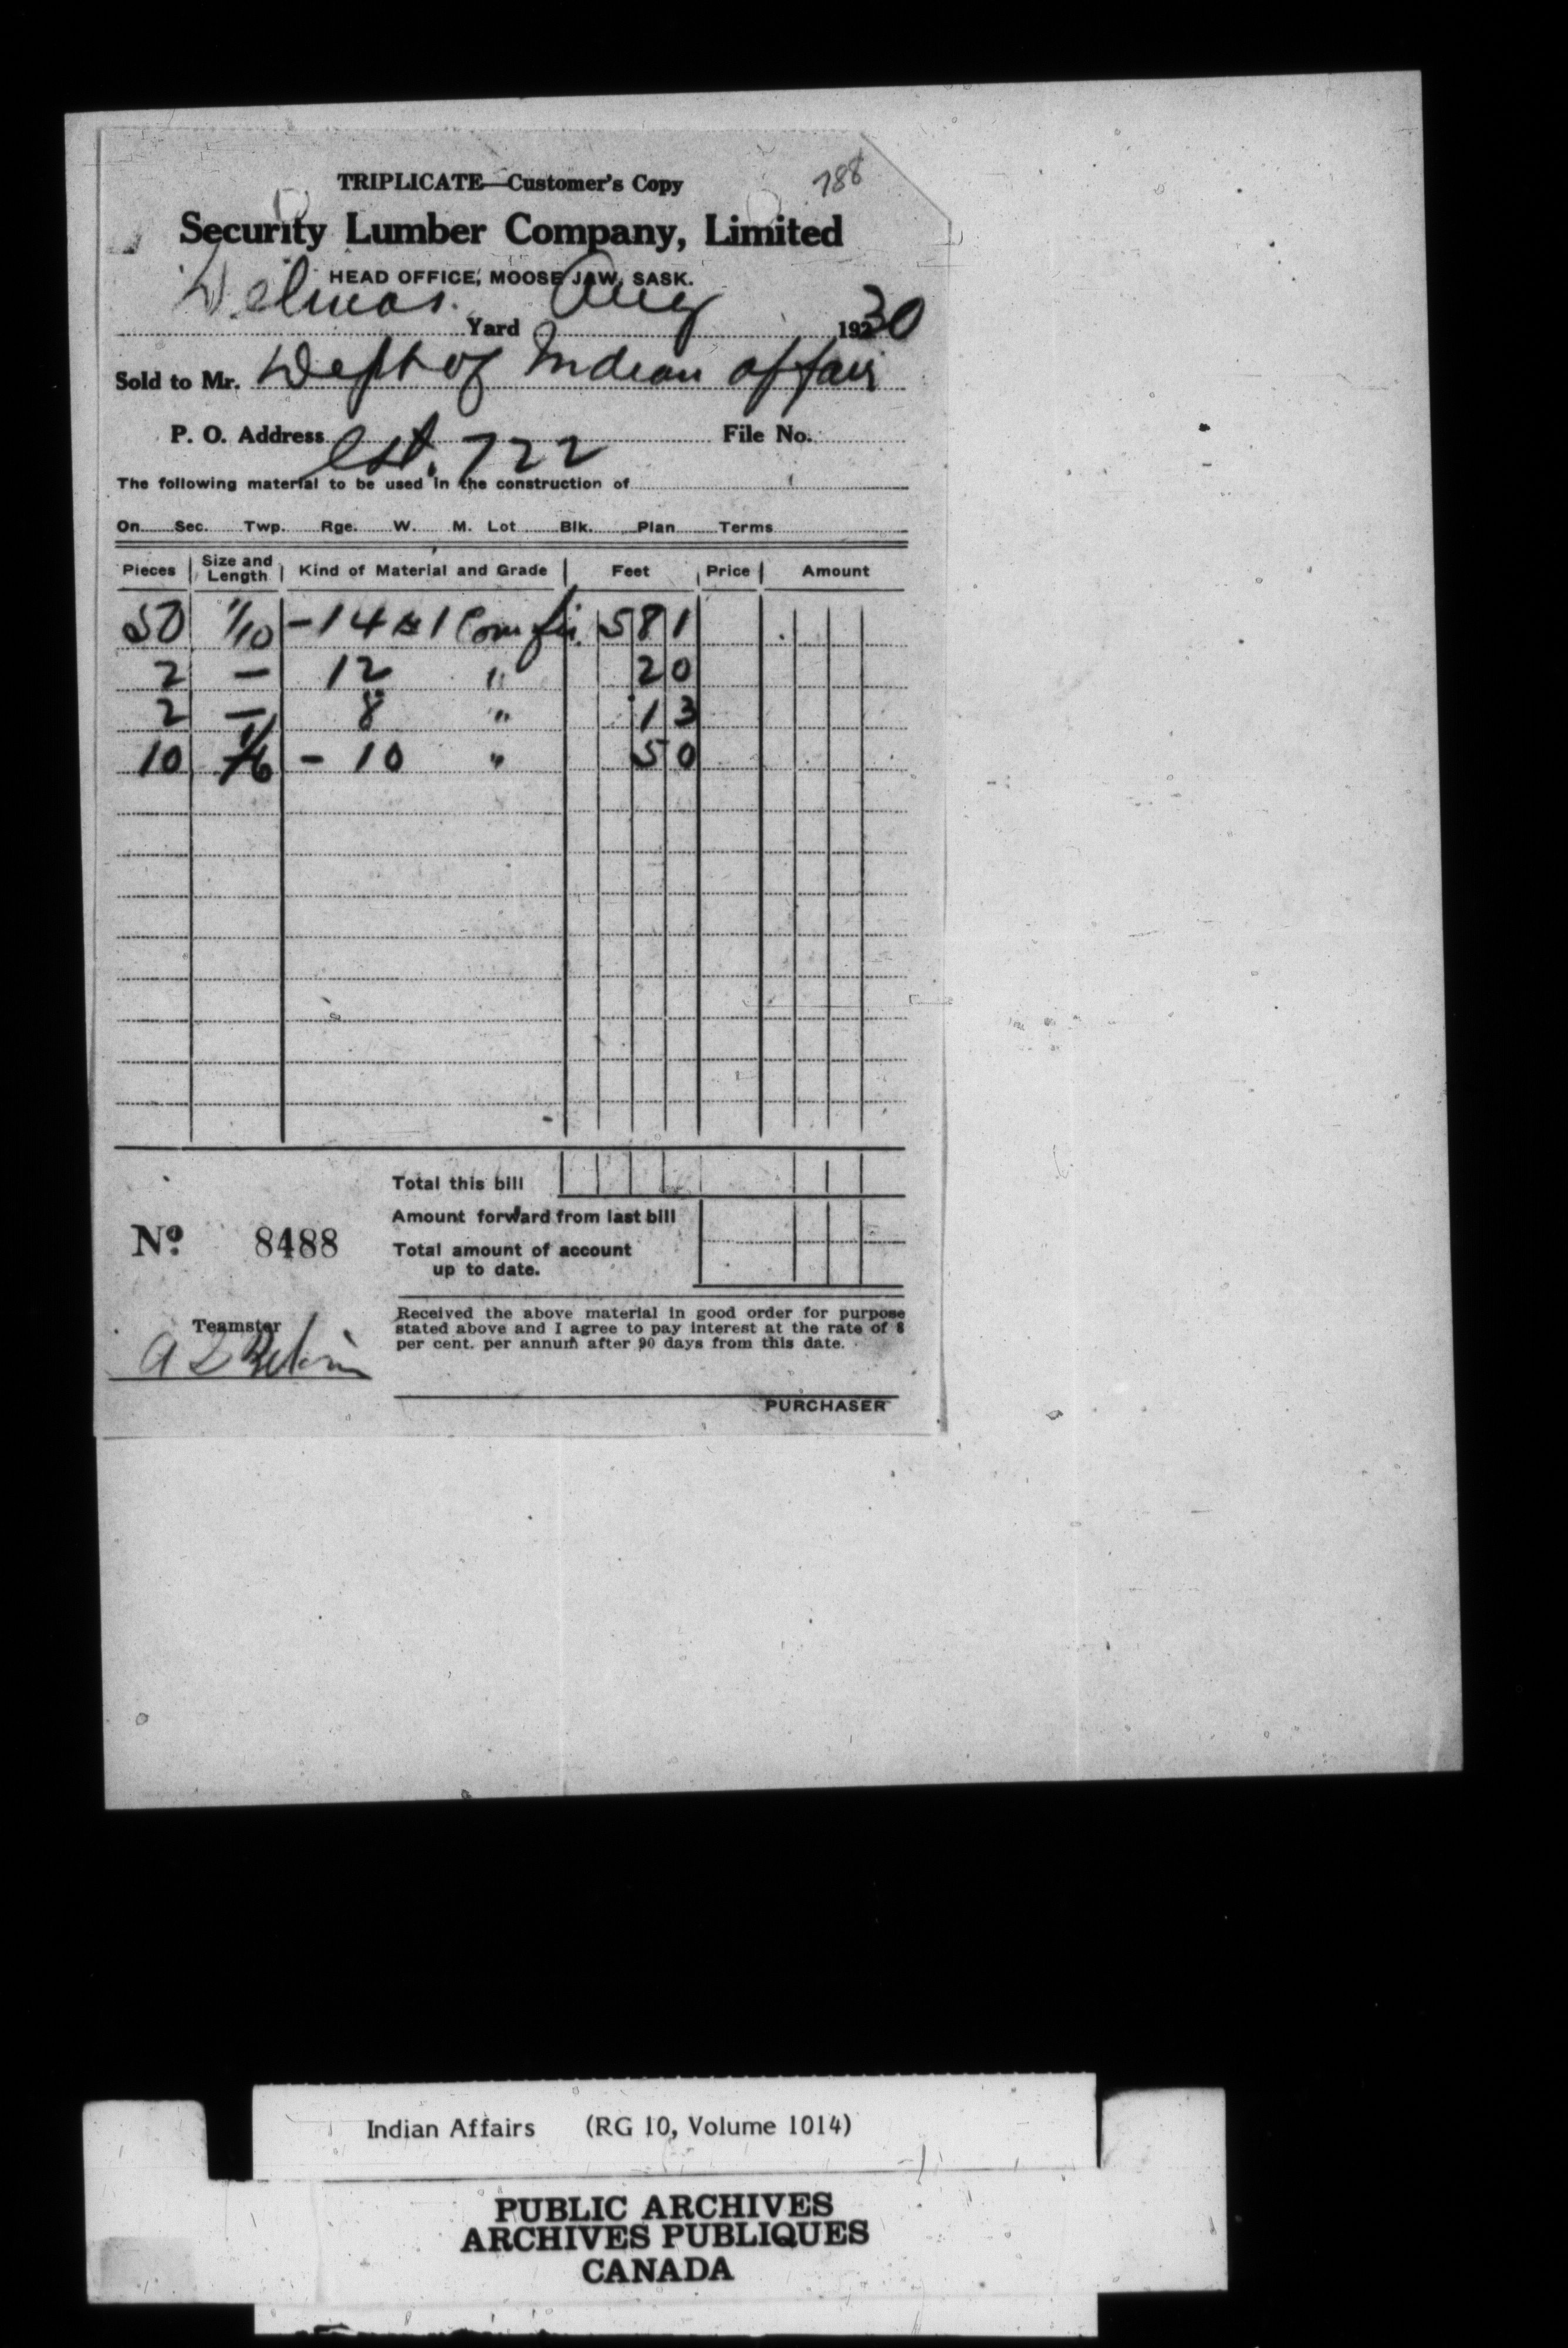 788
TRIPLICATE—Customer's Copy
Security Lumber Company, Limited
HEAD OFFICE, MOOSE JAW, SASK.
Delmas. Yard Aug 19230
Sold to Mr. Dept of Indian affair
P. O. Address Est. 722 File No.
The following material to be used in the construction of
On Sec. Twp. Rge. W. M. Lot Blk. Plan Terms
Pieces Size and Length Kind of Material and Grade Feet Price Amount
50 1/10 - 14 #1 Com fir. 581
2 — 12 " 20
2 — 8 " 13
10 1/6 - 10 " 50
Total this bill
Amount forward from last bill
Nº 8488
Total amount of account
up to date.
Received the above material in good order for purpose
stated above and I agree to pay interest at the rate of 8
per cent. per annum after 90 days from this date.
Teamster
A
PURCHASER
Indian Affairs (RG 10, Volume 1014)
PUBLIC ARCHIVES
ARCHIVES PUBLIQUES
CANADA